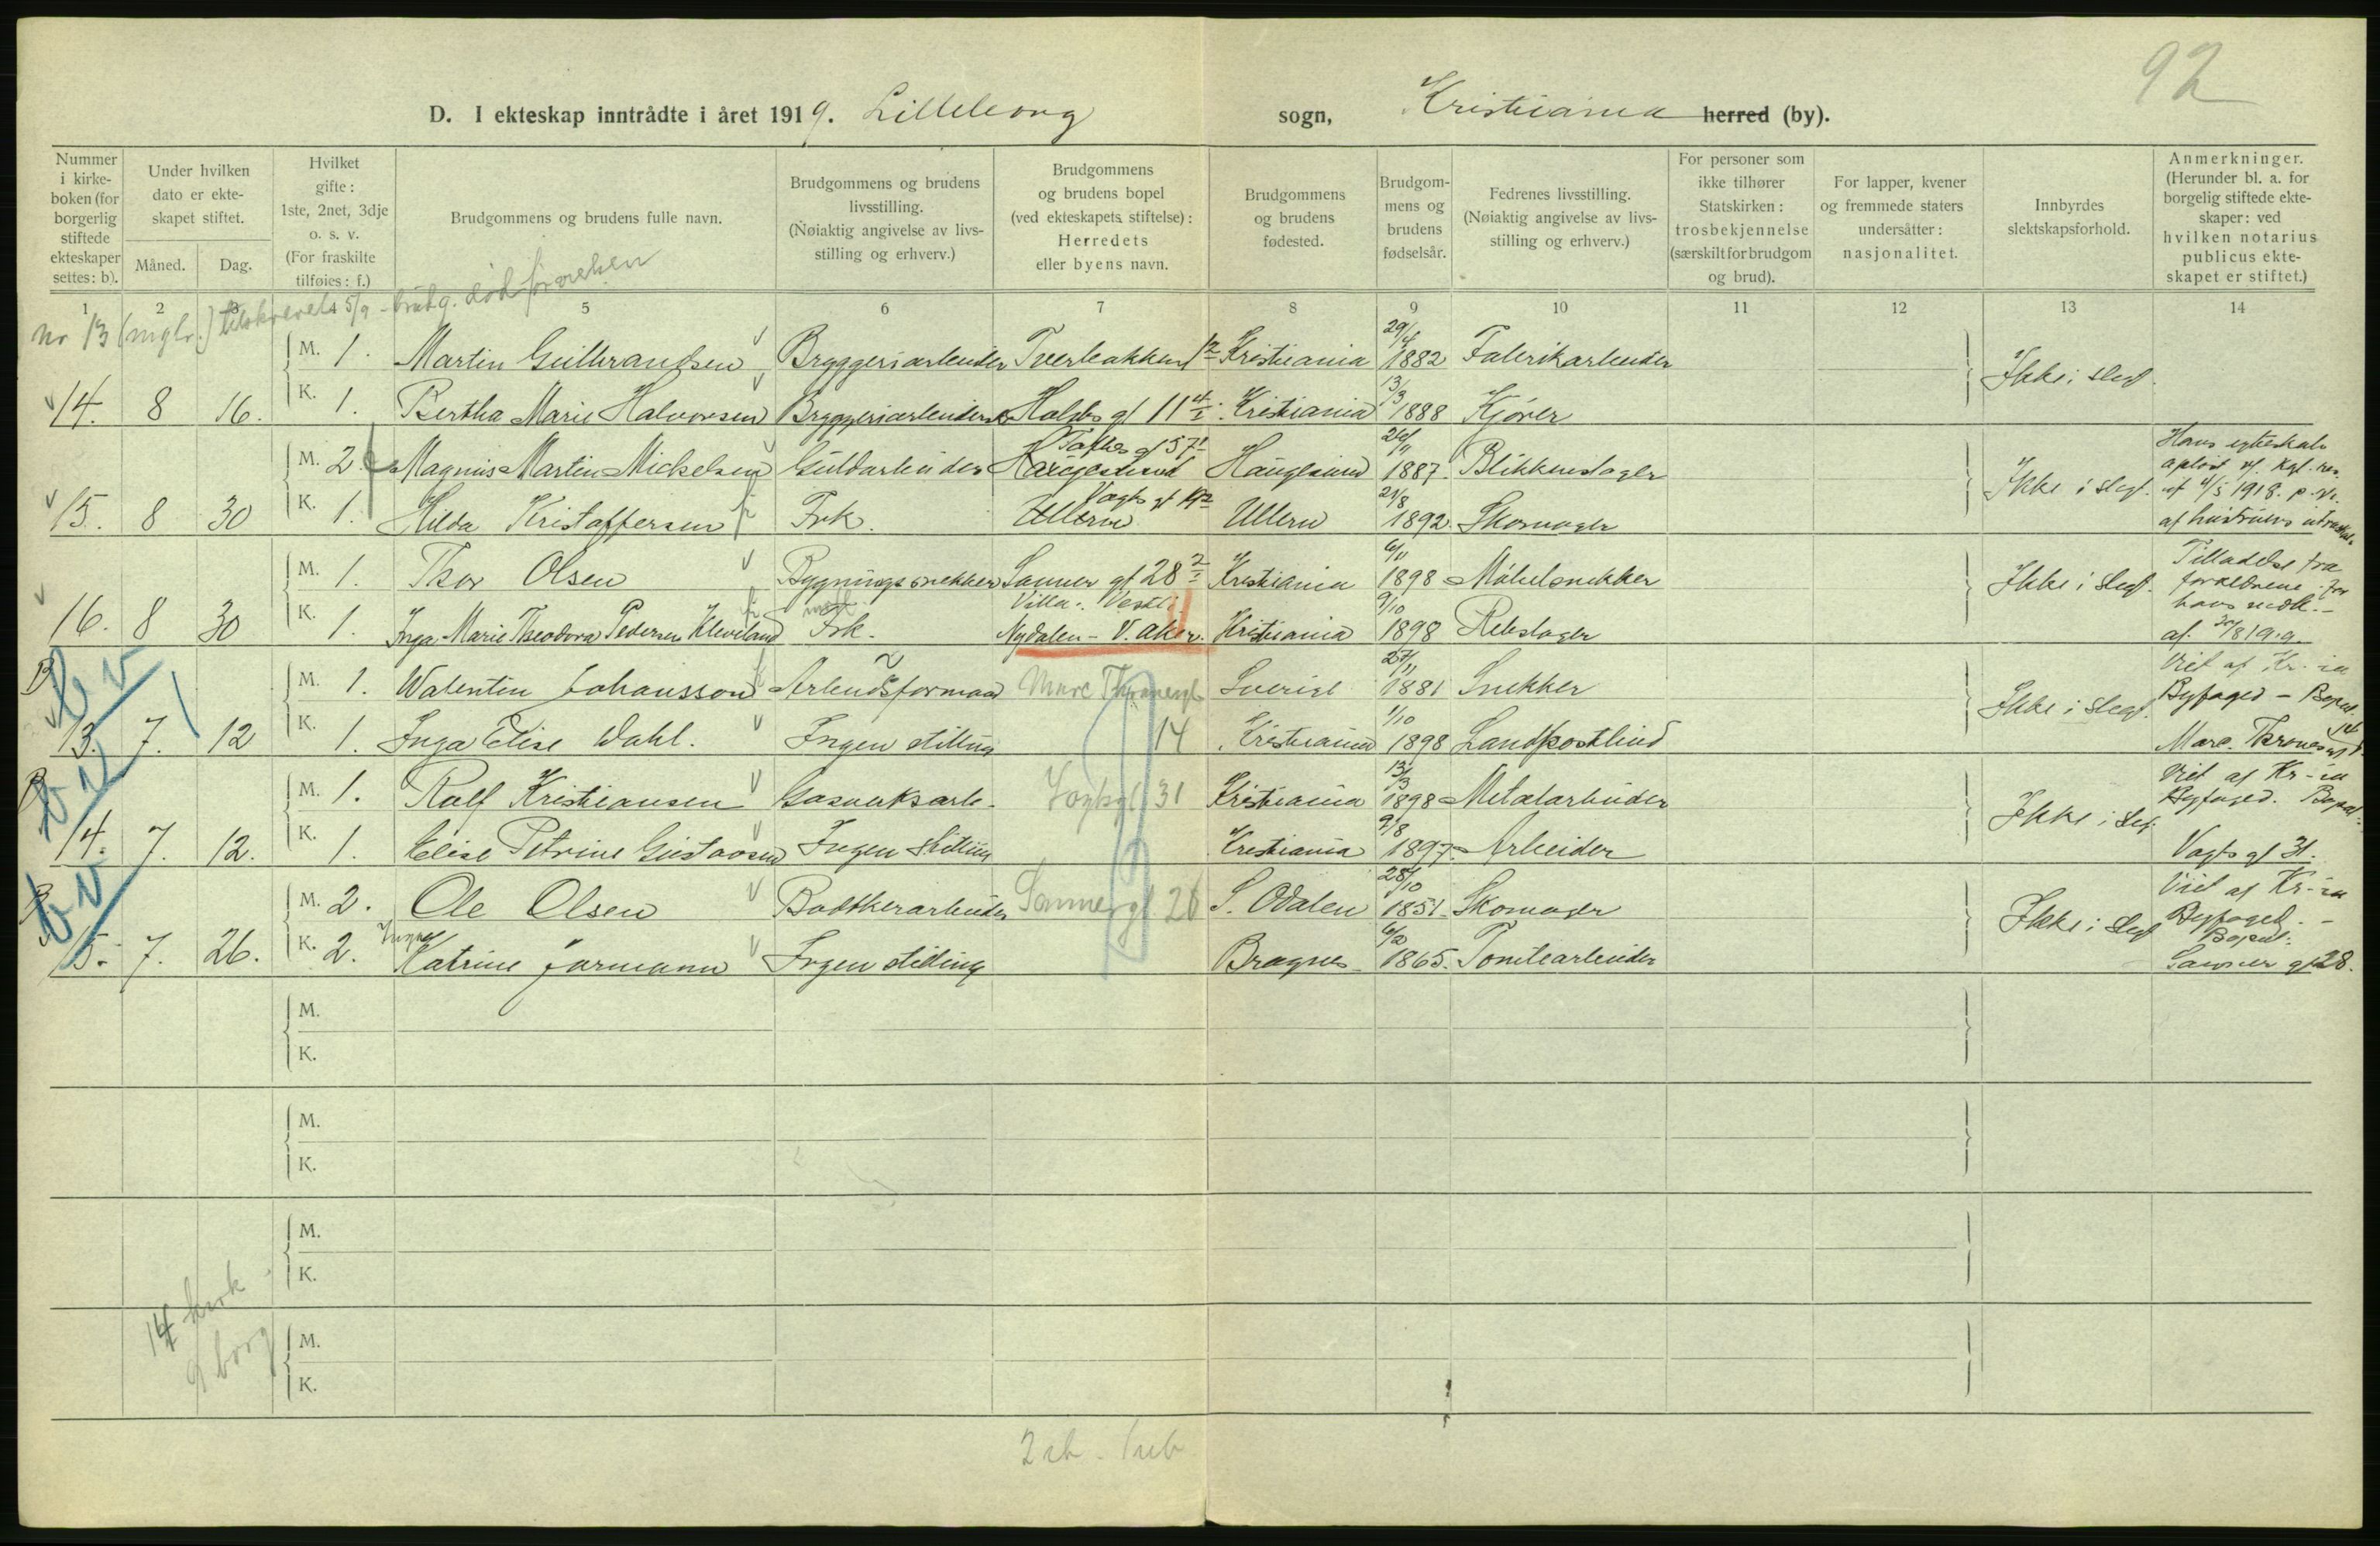 92
D. I ekteskap inntrådte i året 1919. Lilleborg sogn, Kristiania herred (by).
Nummer i kirkeboken (for borgerlig stiftede ekteskaper settes: b).
Under hvilken dato er ekteskapet stiftet.
Måned. Dag.
Hvilket gifte: 1ste, 2net, 3dje o. s. v. (For fraskilte tilføies: f.)
Brudgommens og brudens fulle navn.
Brudgommens og brudens livsstilling. (Nøiaktig angivelse av livsstilling og erhverv.)
Brudgommens og brudens bopel (ved ekteskapets stiftelse): Herredets eller byens navn.
Brudgommens og brudens fødested.
Brudgommens og brudens fødselsår.
Fedrenes livsstilling. (Nøiaktig angivelse av livsstilling og erhverv.)
For personer som ikke tilhører Statskirken: trosbekjennelse (særskilt for brudgom og brud).
For lapper, kvener og fremmede staters undersåtter: nasjonalitet.
Innbyrdes slektskapsforhold.
Anmerkninger. (Herunder bl. a. for borgelig stiftede ekteskaper: ved hvilken notarius publicus ekteskapet er stiftet.)
1 2 3 4 5 6 7 8 9 10 11 12 13 14
nr 13 (mglr.) tilskrevet 5/9 - brudg. død før vielsen
M. 1. Martin Gulbrandsen Bryggeriarbeider Tverbakken 12 Kristiania 29/4 1882 Fabrikarbeider
14. 8 16. K. 1. Bertha Marie Halvorsen Bryggeriarbeiderske Holsts gt 11 4/I Kristiania 13/3 1888 Kjører Ikke i slegt.
M. 2. Magnus Martin Mickelsen Guldarbeider Toftes gt 57 I Haugesund Haugesund 26/11 1887. Blikkenslager
15. 8 30 K. 1. Hilda Kristoffersen Frk. Vogts gt Ullern Ullern 21/8 1892. Skomager Ikke i slegt. Hans egteskab opløst v. kgl. res. af 4/5 1918. p. gr. af hustruens
M. 1. Thor Olsen Bygningssnekker Sanner gt 28 2/I Kristiania 6/11 1898 Møbelsnekker
16. 8 30 K. 1. Inga Marie Theodora Pedersen Kleviland Frk. Villa: Vestli. Nydalen - V. Aker. Kristiania 9/10 1898 Rebslager Ikke i slegt. Tilladelse fra forældrene for hans vedk. - af 20/8 1919.
B M. 1. Walentin Johansson Arbeidsformand Marc Thranesgt Sverige 27/11 1881 Snekker
13. 7. 12 K. 1. Inga Elise Dahl. Ingen stilling 14 Kristiania 1/10 1898 Landpostbud Ikke i slegt. Viet af Kr-ia Byfoged - Bopæl Marc. Thranes gt 14
B M. 1. Rolf Kristiansen Gasverksarb. Vogtsgt 31 Kristiania 13/3 1898 Metalarbeider
14. 7. 12. K. 1. Elise Petrine Gustavsen Ingen stilling Kristiania 9/8 1897. Arbeider Ikke i slegt. Viet af Kr-ia Byfoged. Bopæl: Vogts gt 31.
B M. 2. Ole Olsen Bødkerarbeider Sannergt 28 S. Odalen 28/10 1851. Skomager
15. 7. 26. K. 2. Katrine Jarmann Ingen stilling Bragnes 6/2 1865. Tomtearbeider Ikke i slegt Viet af Kr-ia Byfoged. - Bopæl: Sanner gt 28.
M.
K.
M.
K.
M.
K.
M.
K.
14 kirk
9 borg